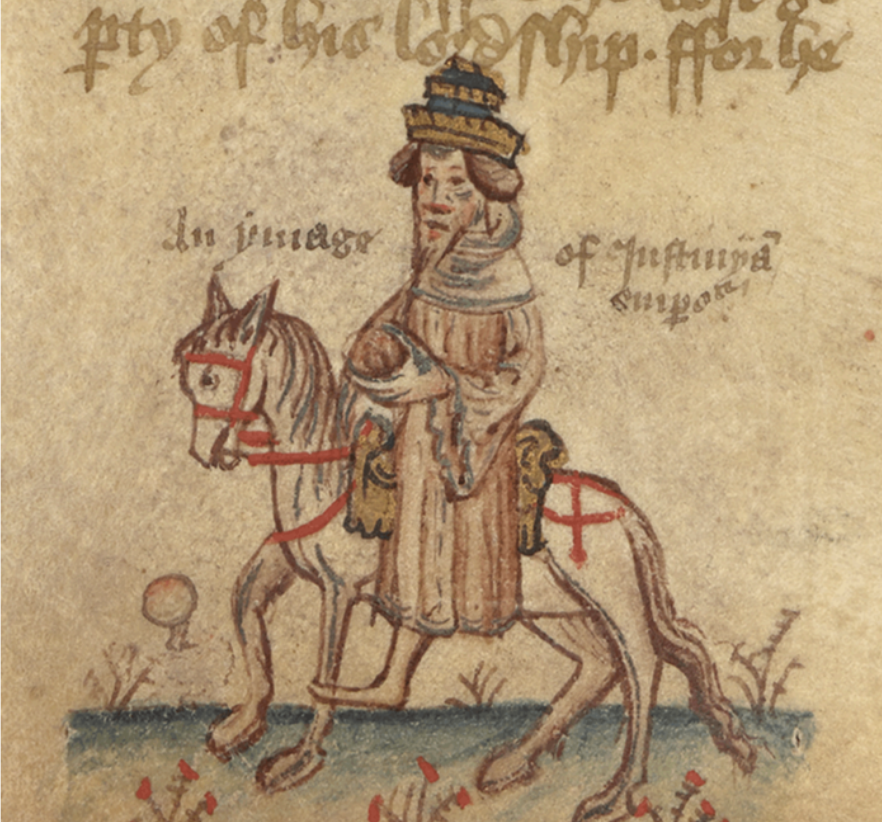 pty of his lordship. ffor he
An ymage
of Justinyā
emperor